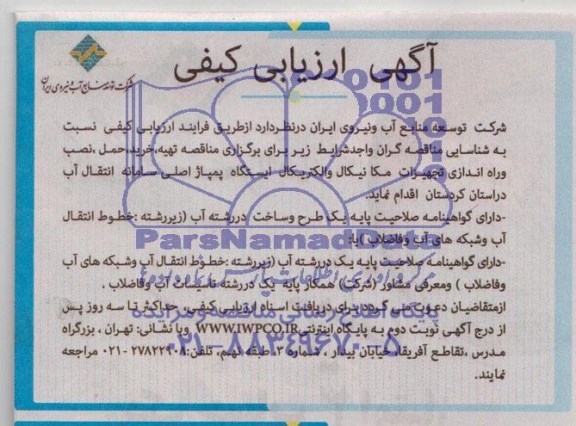 آگهی ارزیابی کیفی
شرکت توسعه منابع آب و نیروی ایران
شرکت توسعه منابع آب ونیروی ایران درنظردارد ازطریق فرایند ارزیابی کیفی نسبت
به شناسایی مناقصه گران واجدشرایط زیر برای برگزاری مناقصه تهیه،خرید،حمل ،نصب
وراه اندازی تجهیزات مکانیکال والکتریکال ایستگاه پمپاژ اصلی سامانه انتقال آب
دراستان کردستان اقدام نماید.
-دارای گواهینامه صلاحیت پایه یک طرح وساخت دررشته آب (زیررشته :خطوط انتقال
آب وشبکه های آب وفاضلاب )یا:
-دارای گواهینامه صلاحیت پایه یک دررشته آب (زیررشته :خطوط انتقال آب وشبکه های آب
وفاضلاب ) ومعرفی مشاور (شرکت) همکار پایه یک دررشته تاسیسات آب وفاضلاب .
ازمتقاضیان دعوت می گردد برای دریافت اسناد ارزیابی کیفی، حداکثر تا سه روز پس
از درج آگهی نوبت دوم به پایگاه اینترنتی WWW.IWPCO.IR ویا نشانی: تهران ، بزرگراه
مدرس ،تقاطع آفریقا، خیابان بیدار ، شماره ۳،طبقه نهم، تلفن:۲۷۸۲۲۹۰۸-۰۲۱ مراجعه
نمایند.
ParsNamadData
پایگاه اطلاع رسانی مناقصه و مزایده
۰۲۱-۸۸۳۴۹۶۷۰-۵